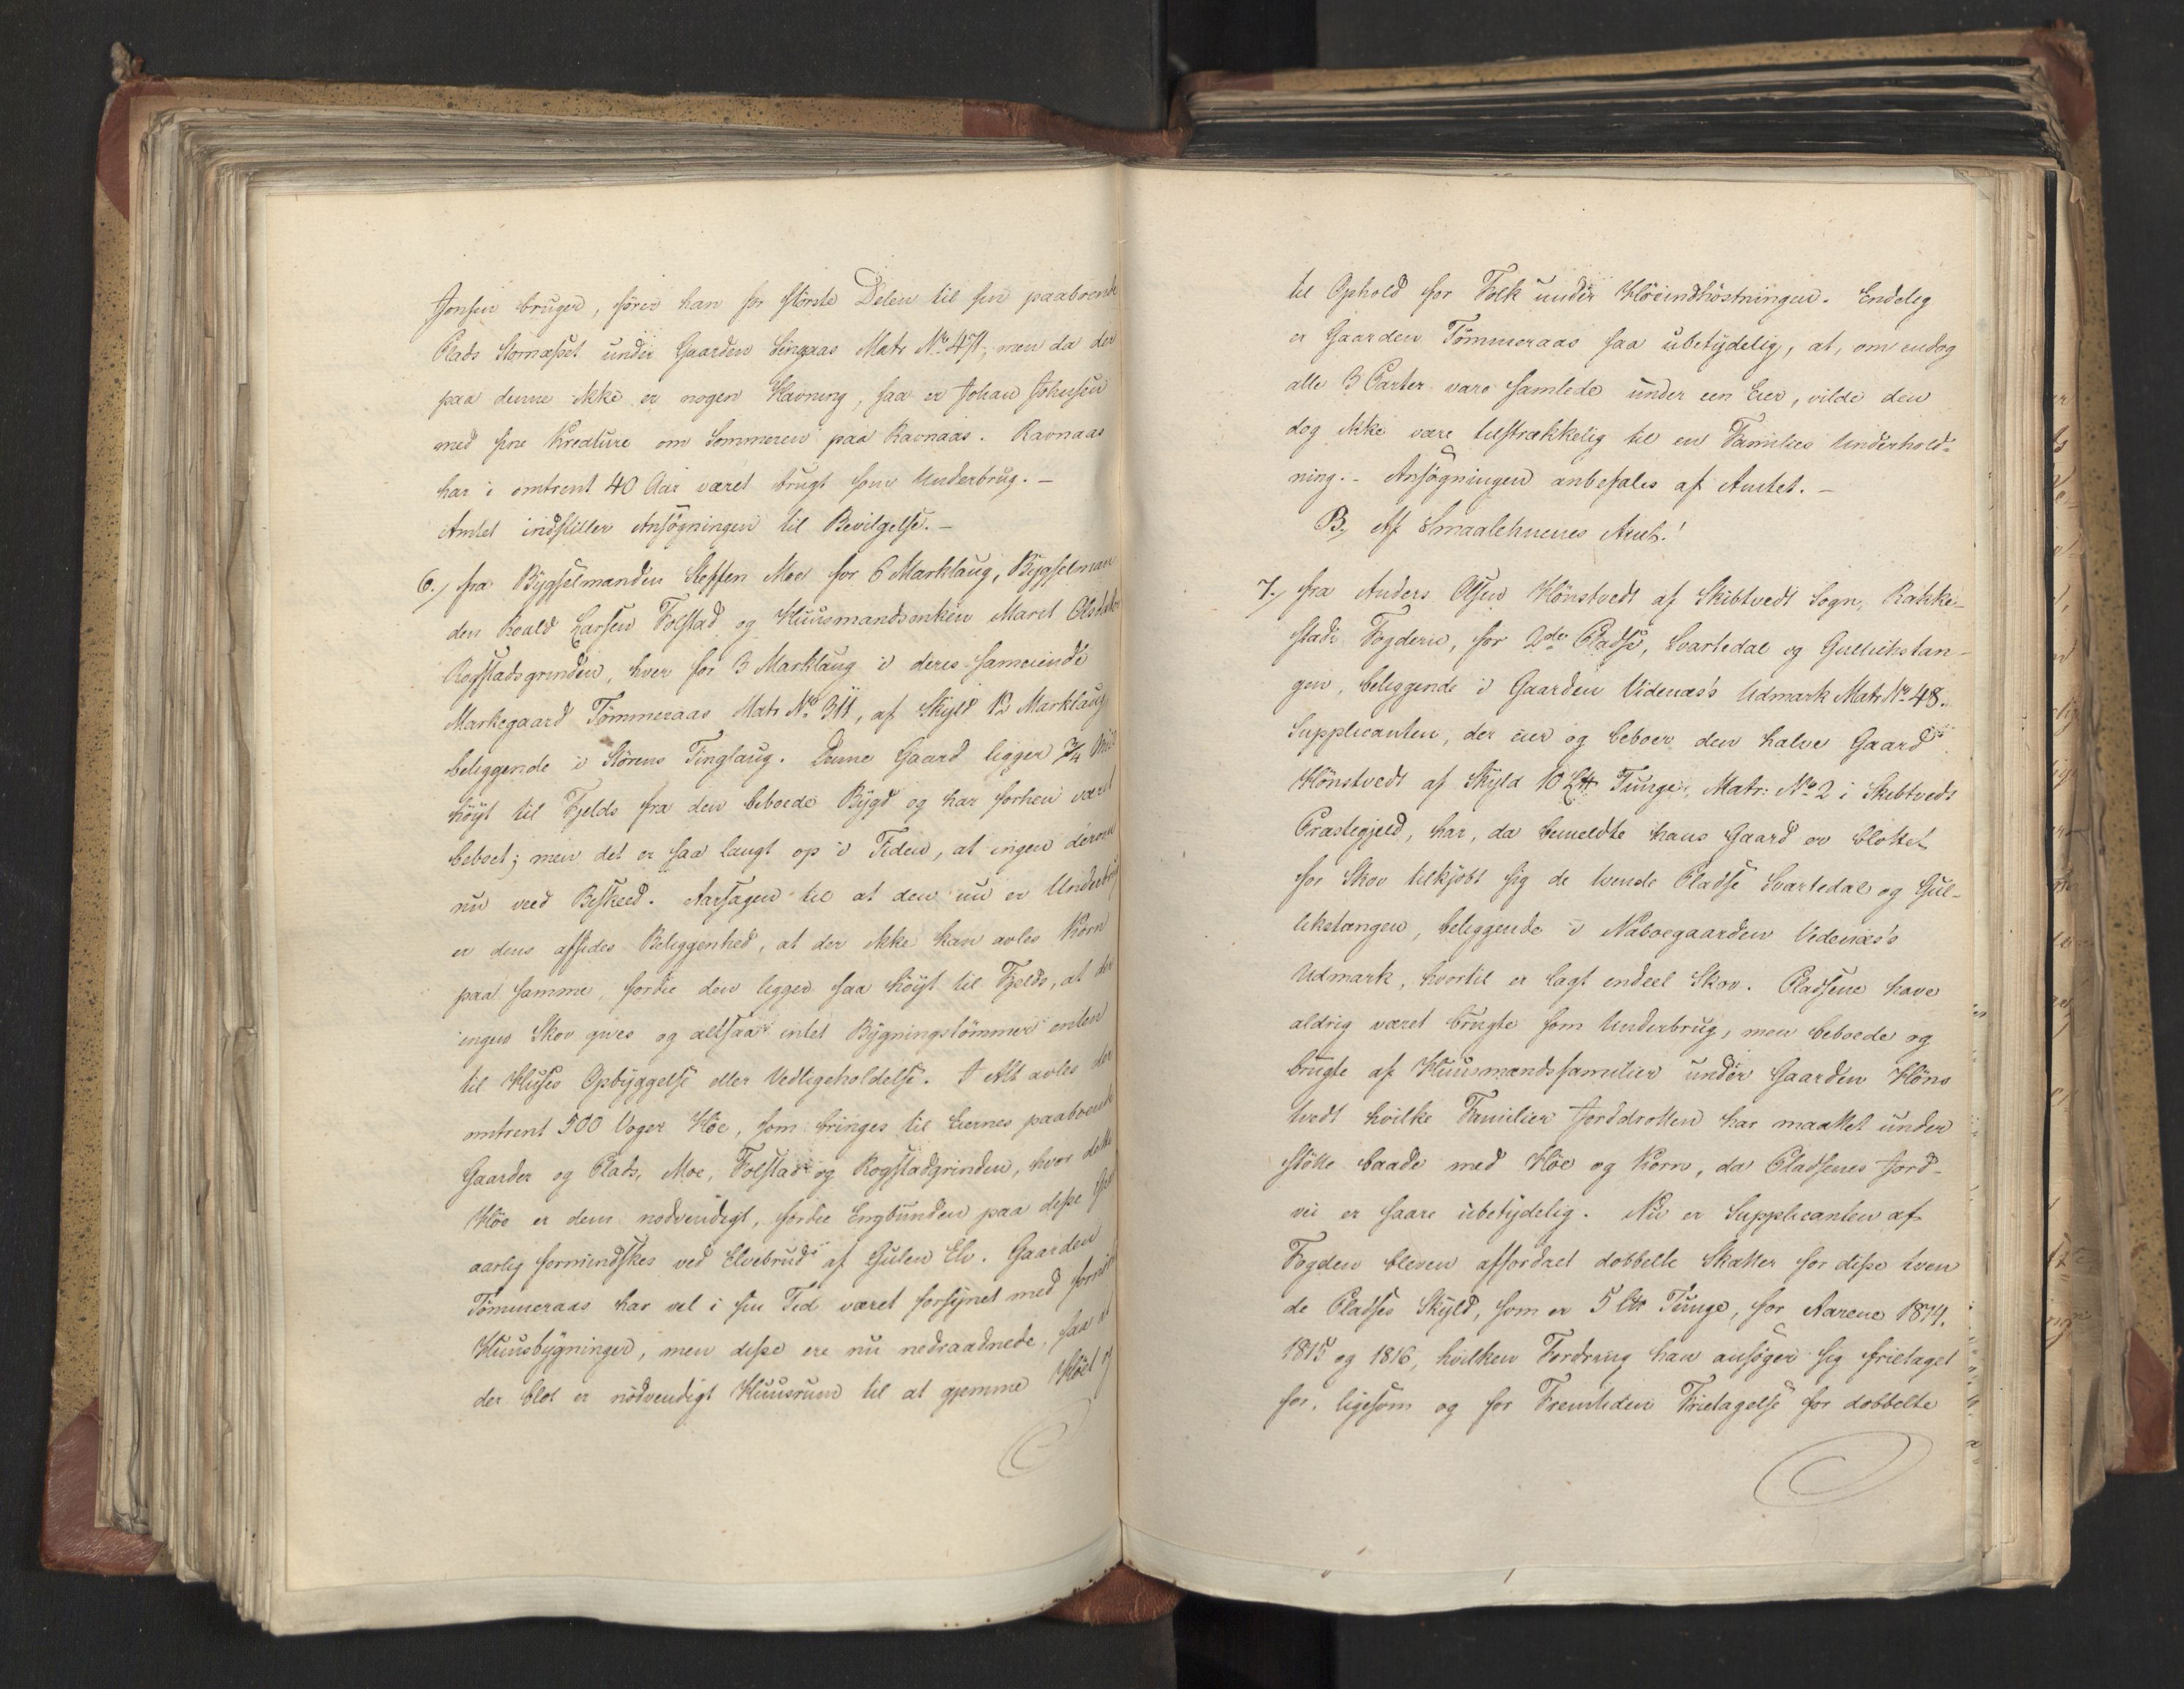 Jonsen bruger, fører han for største Delen til sin paaboende
Plads Stornæsset under Gaarden Singsaas Matr No 471, men da der
paa denne ikke er nogen Havning, saa er Johan Johnsen
med sine Kreature om Sommeren paa Ravnaas. Ravnaas
har i omtrent 40 Aar været brugt som Underbrug. –
Amtet indstiller Ansøgningen til Bevilgelse. –
6., fra Bygselmanden Steffen Moe for 6 Marklaug, Bygselman
den Roald Larsen Folstad og Huusmandsenken Marit Olsdatter
Rogstadsgrinden, hver for 3 Marklaug i deres sameiende
Markegaard Tømmeraas Matr No 311, af Skyld 12 Marklaug
beliggende i Størens Tinglaug. Denne Gaard ligger 3/4 Miil
høyt til Fjelds fra den beboede Bygd og har forhen været
beboet; men det er saa langt op i Tiden, at ingen derom
nu veed Beskeed. Aarsagen til at den nu er Underbrug
er dens afsides Beliggenhed, at der ikke kan avles Korn
paa samme, fordie den ligger saa høyt til Fjelds, at der
ingen Skov gives og altsaa intet Bygningstømmer enten
til Huses Opbyggelse eller Vedligeholdelse. I Alt avles der
omtrent 500 Voger Høe, som bringes til Eiernes paaboende
Gaarder og Plads, Moe, Folstad og Rogstadgrinden, hvor dette
Høe er dem nødvendigt, fordie Engbunden paa disse
aarlig formindskes ved Elvebrud af Gulen Elv. Gaarden
Tømmeraas har vel i sin Tid været forsynet med
Huusbygninger, men disse ere nu nedraadnede, saa at
der blot er nødvendigt Huusrum til at gjemme Høet og
til Ophold for Folk under Høeindhøstningen. Endelig
er Gaarden Tømmeraas saa ubetydelig, at, om endog
alle 3 Parter vare samlede under een Eier, vilde den
dog ikke være tilstrækkelig til en Families Underhold-
ning. - Ansøgningen anbefales af Amtet. –
B., Af Smaalehnenes Amt!
7., fra Anders Olsen Hønstvedt af Skibtvedt Sogn, Rakke-
stads Fogderie, for 2de Pladse, Svartedal og Gullichstan-
gen, beliggende i Gaarden Videnæs's Udmark Matr No 48.
Supplicanten, der eier og beboer den halve Gaard
Hønstvedt af Skyld 10 L℔ Tunge, Matr: No 2 i Skibtvedt
Præstegjeld, har, da bemeldte hans Gaard er blottet
for Skov tilkjøbt sig de tvende Pladse Svartedal og Gul-
likstangen, beliggende i Naboegaarden Videnæs's
Udmark, hvortil er lagt endeel Skov. Pladsene have
aldrig været brugte som Underbrug, men beboede og
brugte af Huusmandsfamilier under Gaarden Høns
tvedt hvilke Familier Jorddrotten har maattet under
støtte baade med Høe og Korn, da Pladsenes Jord-
vei er saare ubetydelig. Nu er Supplicanten af
Fogden bleven affordret dobbelte Skatter for disse tven
de Pladses Skyld, som er 5 L℔ Tunge, for Aarene 1814.
1815 og 1816, hvilken Fordring han ansøger sig frietaget
for, ligesom og for Fremtiden Frietagelse for dobbelte